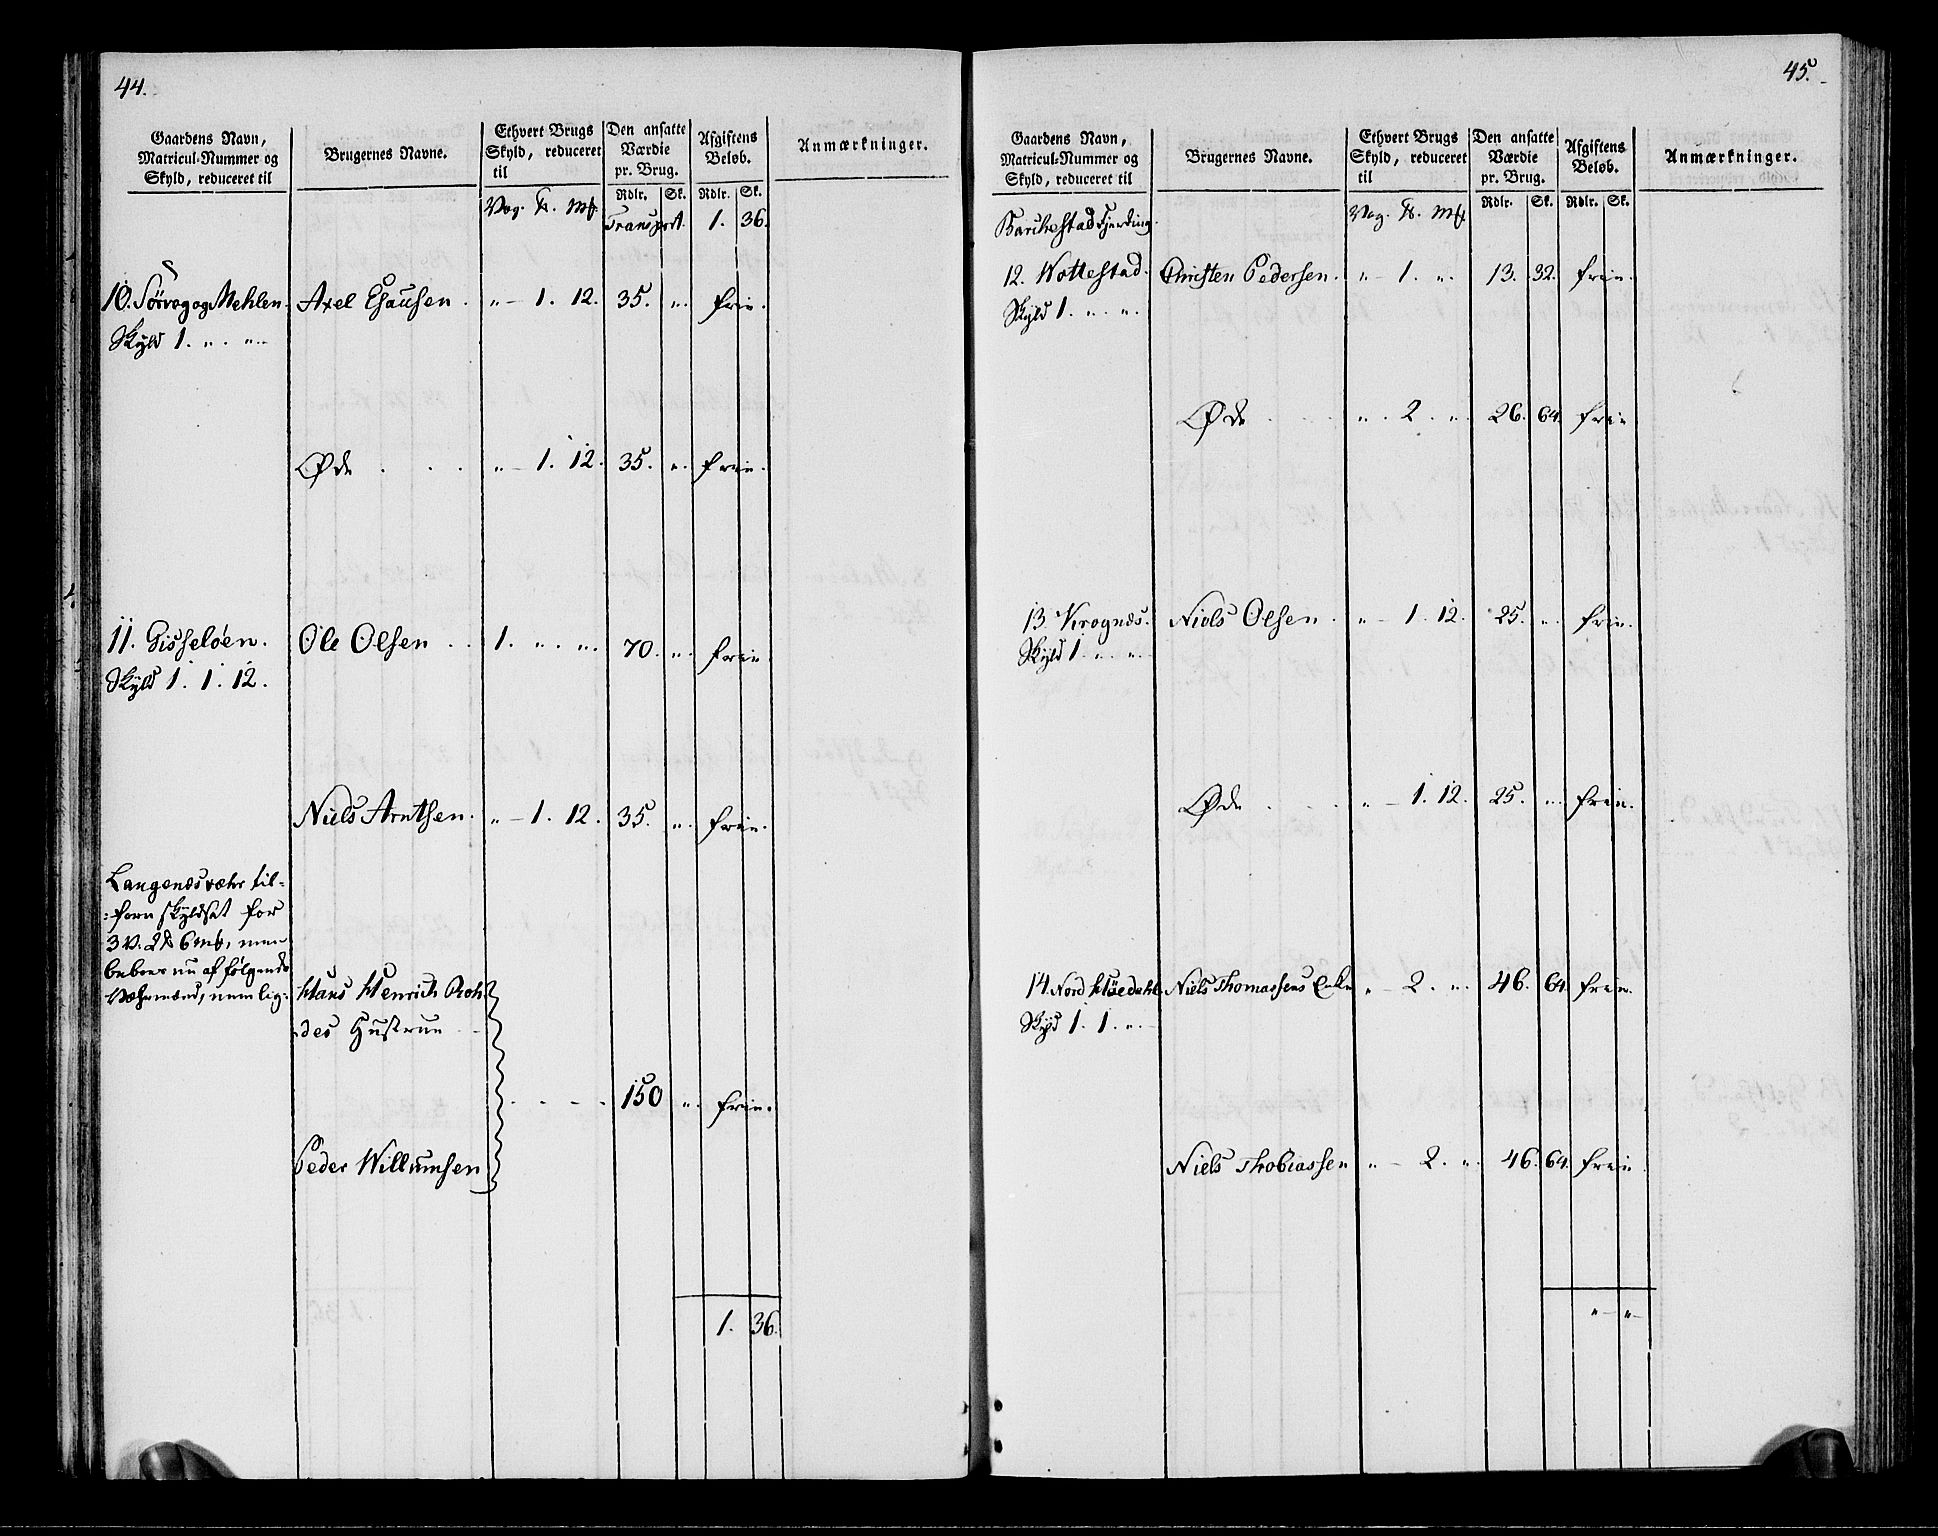 44.
Gaardens Navn, Matricul-Nummer og Skyld, reduceret til
Brugernes Navne.
Ethvert Brugs Skyld, reduceret til
Den ansatte Værdie pr. Brug.
Afgiftens Beløb.
Anmærkninger.
Rdlr. Sk. Rdlr. Sk.
Vog. ℔. Mk. Transport. 1. 36.
10. Sörvog og Mehlen. Axel Esausen . „ – 1. 12. 35. „. frie.
Skyld 1. „. „.
Øde . . . „ – 1. 12. 35. „. frie.
11. Gisseløen. Ole Olsen . . 1. „. „. 70. „. frie.
Skyld 1. 1. 12.
Niels Arntsen. „ – 1. 12. 35. „. frie.
Langenæs væhr til-
:forn skyldsat for
3 V. 2 ℔ 6 mk, men
beboes nu af følgende
Væhrmænd, nemlig:
Hans Henrich Roh-
des Hustrue
. . . . 150 „. frie.
Peder Willumsen
1. 36.
45.
Gaardens Navn, Matricul-Nummer og Skyld, reduceret til
Brugernes Navne.
Ethvert Brugs Skyld, reduceret til
Den ansatte Værdie pr. Brug.
Afgiftens Beløb.
Anmærkninger.
Rdlr. Sk. Rdlr. Sk.
Barchestad Fjerding. Vog. ℔. Mk.
12. Wottestad. Christen Pedersen. „ – 1. „. 13. 32. frie.
Skyld 1. „. „.
Øde . . . „ . 2. „. 26. 64. frie
13. Krognæs. Niels Olsen . „ – 1. 12. 25. „. frie.
Skyld 1. „. „.
Øde . . . „ – 1. 12. 25. „. frie.
14. Nord Niels Thomassens Enke „ – 2. „. 46. 64. frie.
Skyld 1. 1. „.
Niels Thobiassen „ – 2. „. 46. 64. frie
„ – „ –